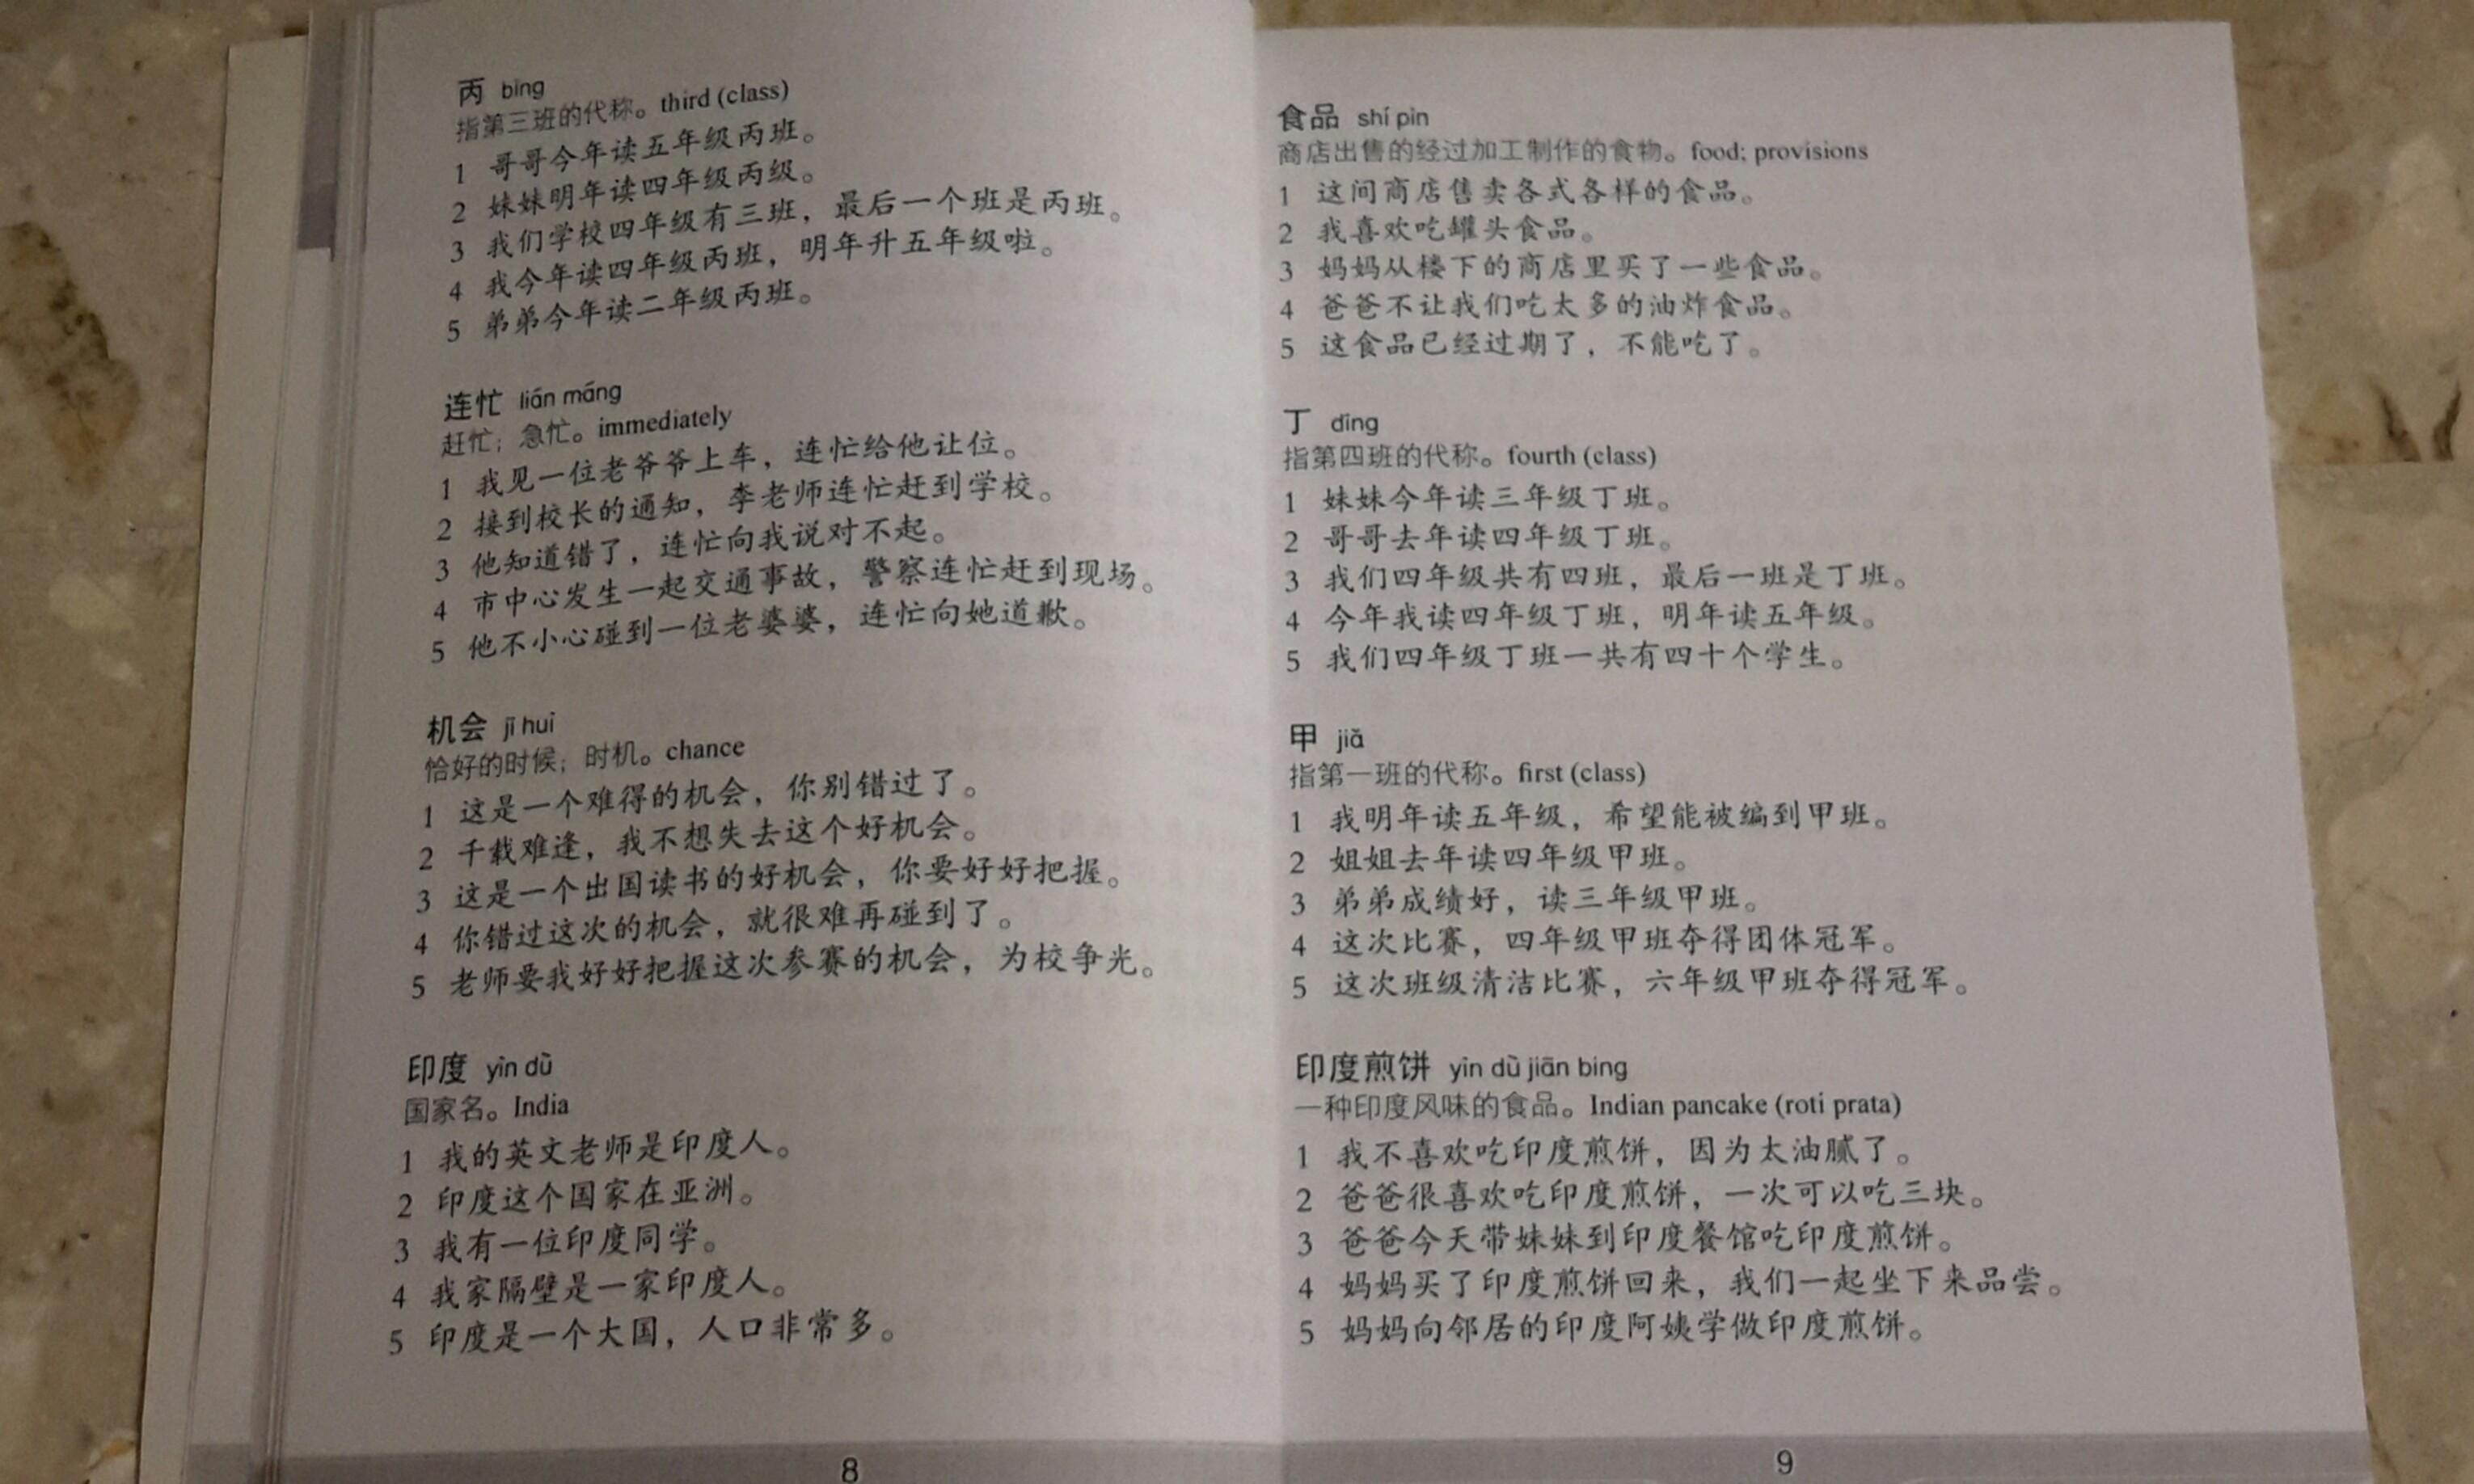 丙 bǐng
指第三班的代称。third (class)
1 哥哥今年读五年级丙班。
2 妹妹明年读四年级丙级。
3 我们学校四年级有三班，最后一个班是丙班。
4 我今年读四年级丙班，明年升五年级啦。
5 弟弟今年读二年级丙班。
连忙 lián máng
赶忙；急忙。immediately
1 我见一位老爷爷上车，连忙给他让位。
2 接到校长的通知，李老师连忙赶到学校。
3 他知道错了，连忙向我说对不起。
4 市中心发生一起交通事故，警察连忙赶到现场。
5 他不小心碰到一位老婆婆，连忙向她道歉。
机会 jī huì
恰好的时候；时机。chance
1 这是一个难得的机会，你别错过了。
2 千载难逢，我不想失去这个好机会。
3 这是一个出国读书的好机会，你要好好把握。
4 你错过这次的机会，就很难再碰到了。
5 老师要我好好把握这次参赛的机会，为校争光。
印度 yìn dù
国家名。India
1 我的英文老师是印度人。
2 印度这个国家在亚洲。
3 我有一位印度同学。
4 我家隔壁是一家印度人。
5 印度是一个大国，人口非常多。
8
食品 shí pǐn
商店出售的经过加工制作的食物。food; provisions
1 这间商店售卖各式各样的食品。
2 我喜欢吃罐头食品。
3 妈妈从楼下的商店里买了一些食品。
4 爸爸不让我们吃太多的油炸食品。
5 这食品已经过期了，不能吃了。
丁 dīng
指第四班的代称。fourth (class)
1 妹妹今年读三年级丁班。
2 哥哥去年读四年级丁班。
3 我们四年级共有四班，最后一班是丁班。
4 今年我读四年级丁班，明年读五年级。
5 我们四年级丁班一共有四十个学生。
甲 jiǎ
指第一班的代称。first (class)
1 我明年读五年级，希望能被编到甲班。
2 姐姐去年读四年级甲班。
3 弟弟成绩好，读三年级甲班。
4 这次比赛，四年级甲班夺得团体冠军。
5 这次班级清洁比赛，六年级甲班夺得冠军。
印度煎饼 yìn dù jiān bǐng
一种印度风味的食品。Indian pancake (roti prata)
1 我不喜欢吃印度煎饼，因为太油腻了。
2 爸爸很喜欢吃印度煎饼，一次可以吃三块。
3 爸爸今天带妹妹到印度餐馆吃印度煎饼。
4 妈妈买了印度煎饼回来，我们一起坐下来品尝。
5 妈妈向邻居的印度阿姨学做印度煎饼。
9